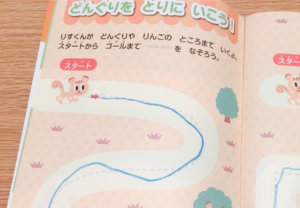 どんぐりを とりに いこう!
りすくんが どんぐりや りんごの ところまで いくよ。
スタートから ゴールまで を なぞろう。
スタート
スタート